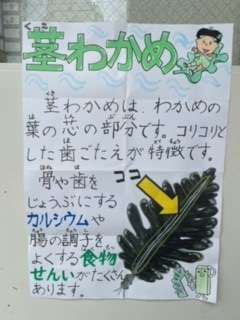 茎わかめ
茎わかめは、わかめの
葉の芯の部分です。コリコリと
した歯ごたえが特徴です。
骨や歯を
じょうぶにする
カルシウムや
腸の調子を
よくする食物
せんいがたくさん
あります。
ココ